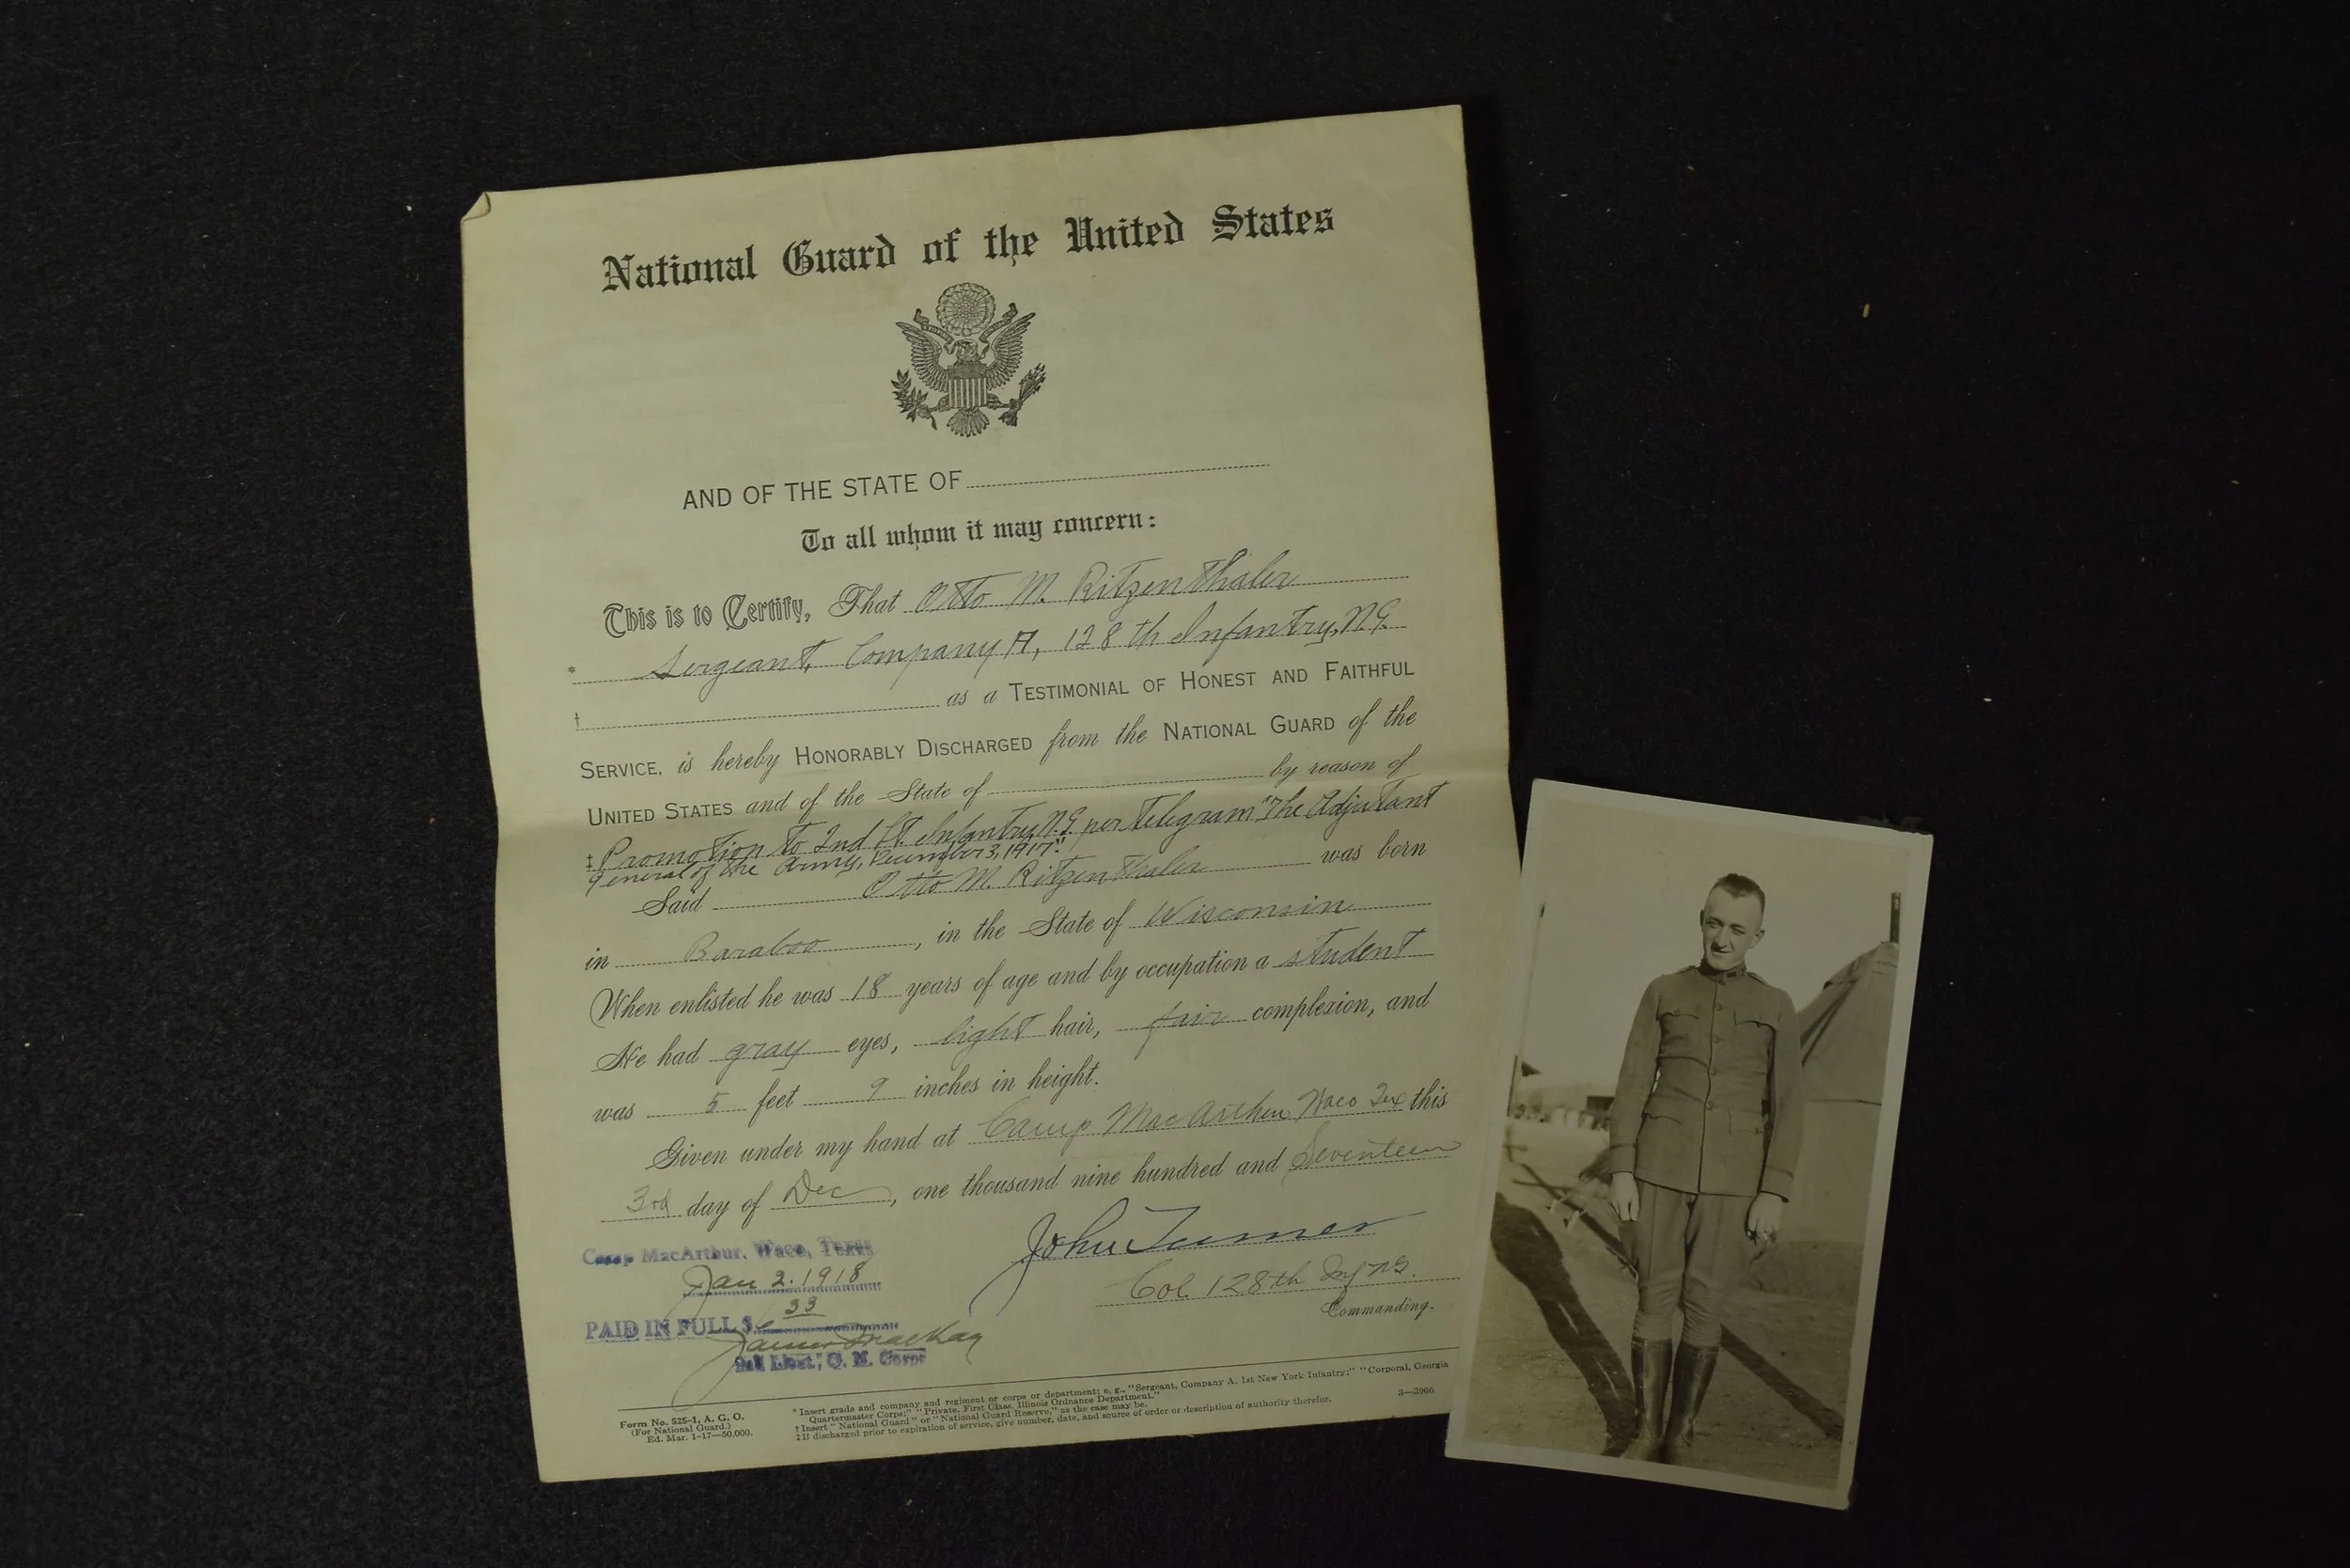 National Guard of the United States
AND OF THE STATE OF
To all whom it may concern:
This is to Certify, That Otto M. Ritzenthaler
* Sergeant, Company A, 128th Infantry, N.G.
† as a TESTIMONIAL OF HONEST AND FAITHFUL
SERVICE, is hereby HONORABLY DISCHARGED from the NATIONAL GUARD of the
UNITED STATES and of the State of by reason of
‡ Promotion to 2nd Lt. Infantry N.G. per telegram "The Adjutant
General of the Army, December 3, 1917."
Said Otto M. Ritzenthaler was born
in Baraboo, in the State of Wisconsin
When enlisted he was 18 years of age and by occupation a student
He had gray eyes, light hair, fair complexion, and
was 5 feet 9 inches in height.
Given under my hand at Camp MacArthur Waco Tex this
3rd day of Dec, one thousand nine hundred and Seventeen
John Turner
Col 128th Inf NG.
Commanding.
Camp MacArthur, Waco, Texas
Jan 2. 1918
PAID IN FULL $ 33
Lieut., Q. M. Corps
Form No. 525-1, A. G. O.
(For National Guard.)
Ed. Mar. 1-17—50,000.
* Insert grade and company and regiment or corps or department; e. g., "Sergeant, Company A, 1st New York Infantry;" "Corporal, Georgia
Quartermaster Corps;" "Private, First Class, Illinois Ordnance Department."
† Insert "National Guard" or "National Guard Reserve," as the case may be.
‡ If discharged prior to expiration of service, give number, date, and source of order or description of authority therefor.
3—3966